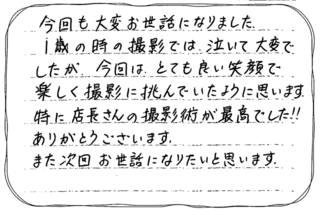 今回も大変お世話になりました.
1歳の時の撮影では、泣いて大変で
したが、今回は、とても良い笑顔で
楽しく撮影に挑んでいたように思います.
特に店長さんの撮影術が最高でした!!
ありがとうございます.
また次回お世話になりたいと思います.